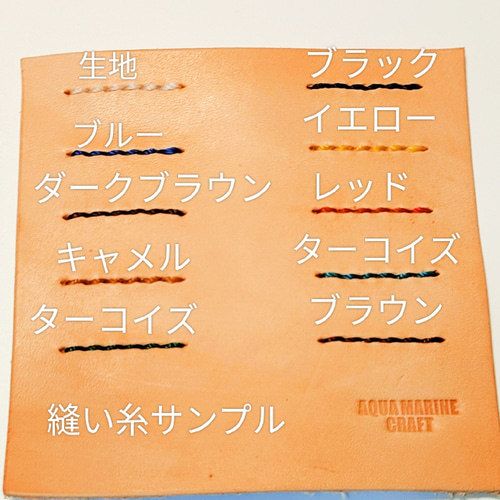 生地
ブラック
ブルー
イエロー
ダークブラウン
レッド
キャメル
ターコイズ
ターコイズ
ブラウン
縫い糸サンプル
AQUA MARINE
CRAFT